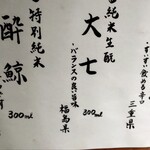 すいすい飲める辛口
三重県
純米生酛
大七
300ml
・バランスの良い旨味
福島県
特別純米
酔鯨
300ml